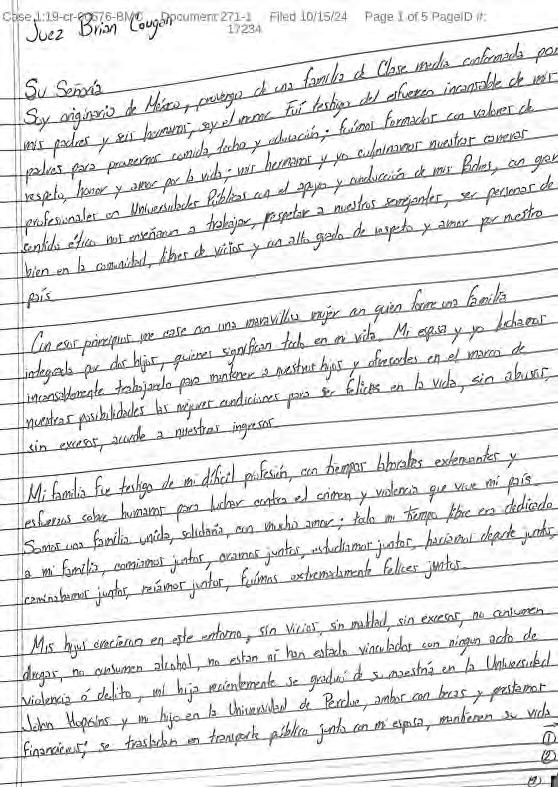 Case 1:19-cr-00576-BMC Document 271-1 Filed 10/15/24 Page 1 of 5 PageID #:
17234
Juez Brian Cougan
Su Señoría
Soy originario de México, provengo de una familia de Clase media conformada por
mis padres y seis hermanos, soy el menor. Fui testigo del esfuerzo incansable de mis
padres para proveernos comida, techo y educación; fuimos formados con valores de
respeto, honor y amor por la vida; mis hermanos y yo culminamos nuestras carreras
profesionales en Universidades Públicas con el apoyo y conducción de mis Padres, con gran
sentido ético nos enseñaron a trabajar, respetar a nuestros semejantes, ser personas de
bien en la comunidad, libres de vicios y un alto grado de respeto y amor por nuestro
país
Con esos principios me case con una maravillosa mujer con quien forme una familia
integrada por dos hijos, quienes significan todo en mi vida. Mi esposa y yo luchamos
incansablemente trabajando para mantener a nuestros hijos y ofrecerles en el marco de
nuestras posibilidades las mejores condiciones para ser felices en la vida, sin abusos,
sin excesos, acorde a nuestros ingresos
Mi familia fue testigo de mi difícil profesión, con tiempos laborales extenuantes y
esfuerzos sobre humanos para luchar contra el crimen y violencia que vive mi país.
Somos una familia unida, solidaria, con mucho amor; todo mi tiempo libre era dedicado
a mi familia, comíamos juntos, orabamos juntos, estudiamos juntos, hacíamos deporte juntos,
caminabamos juntos, reíamos juntos, fuimos extremadamente felices juntos.
Mis hijos crecieron en este entorno, sin vicios, sin maldad, sin excesos, no consumen
drogas, no consumen alcohol, no estan ni han estado vinculados con ningun acto de
violencia ó delito, mi hija recientemente se graduó de su maestría en la Universidad
John Hopkins y mi hijo en la Universidad de Perdue, ambos con becas y prestamos
financieros; se trasladan en transporte público junto con mi esposa, mantienen su vida
(1)
(2)